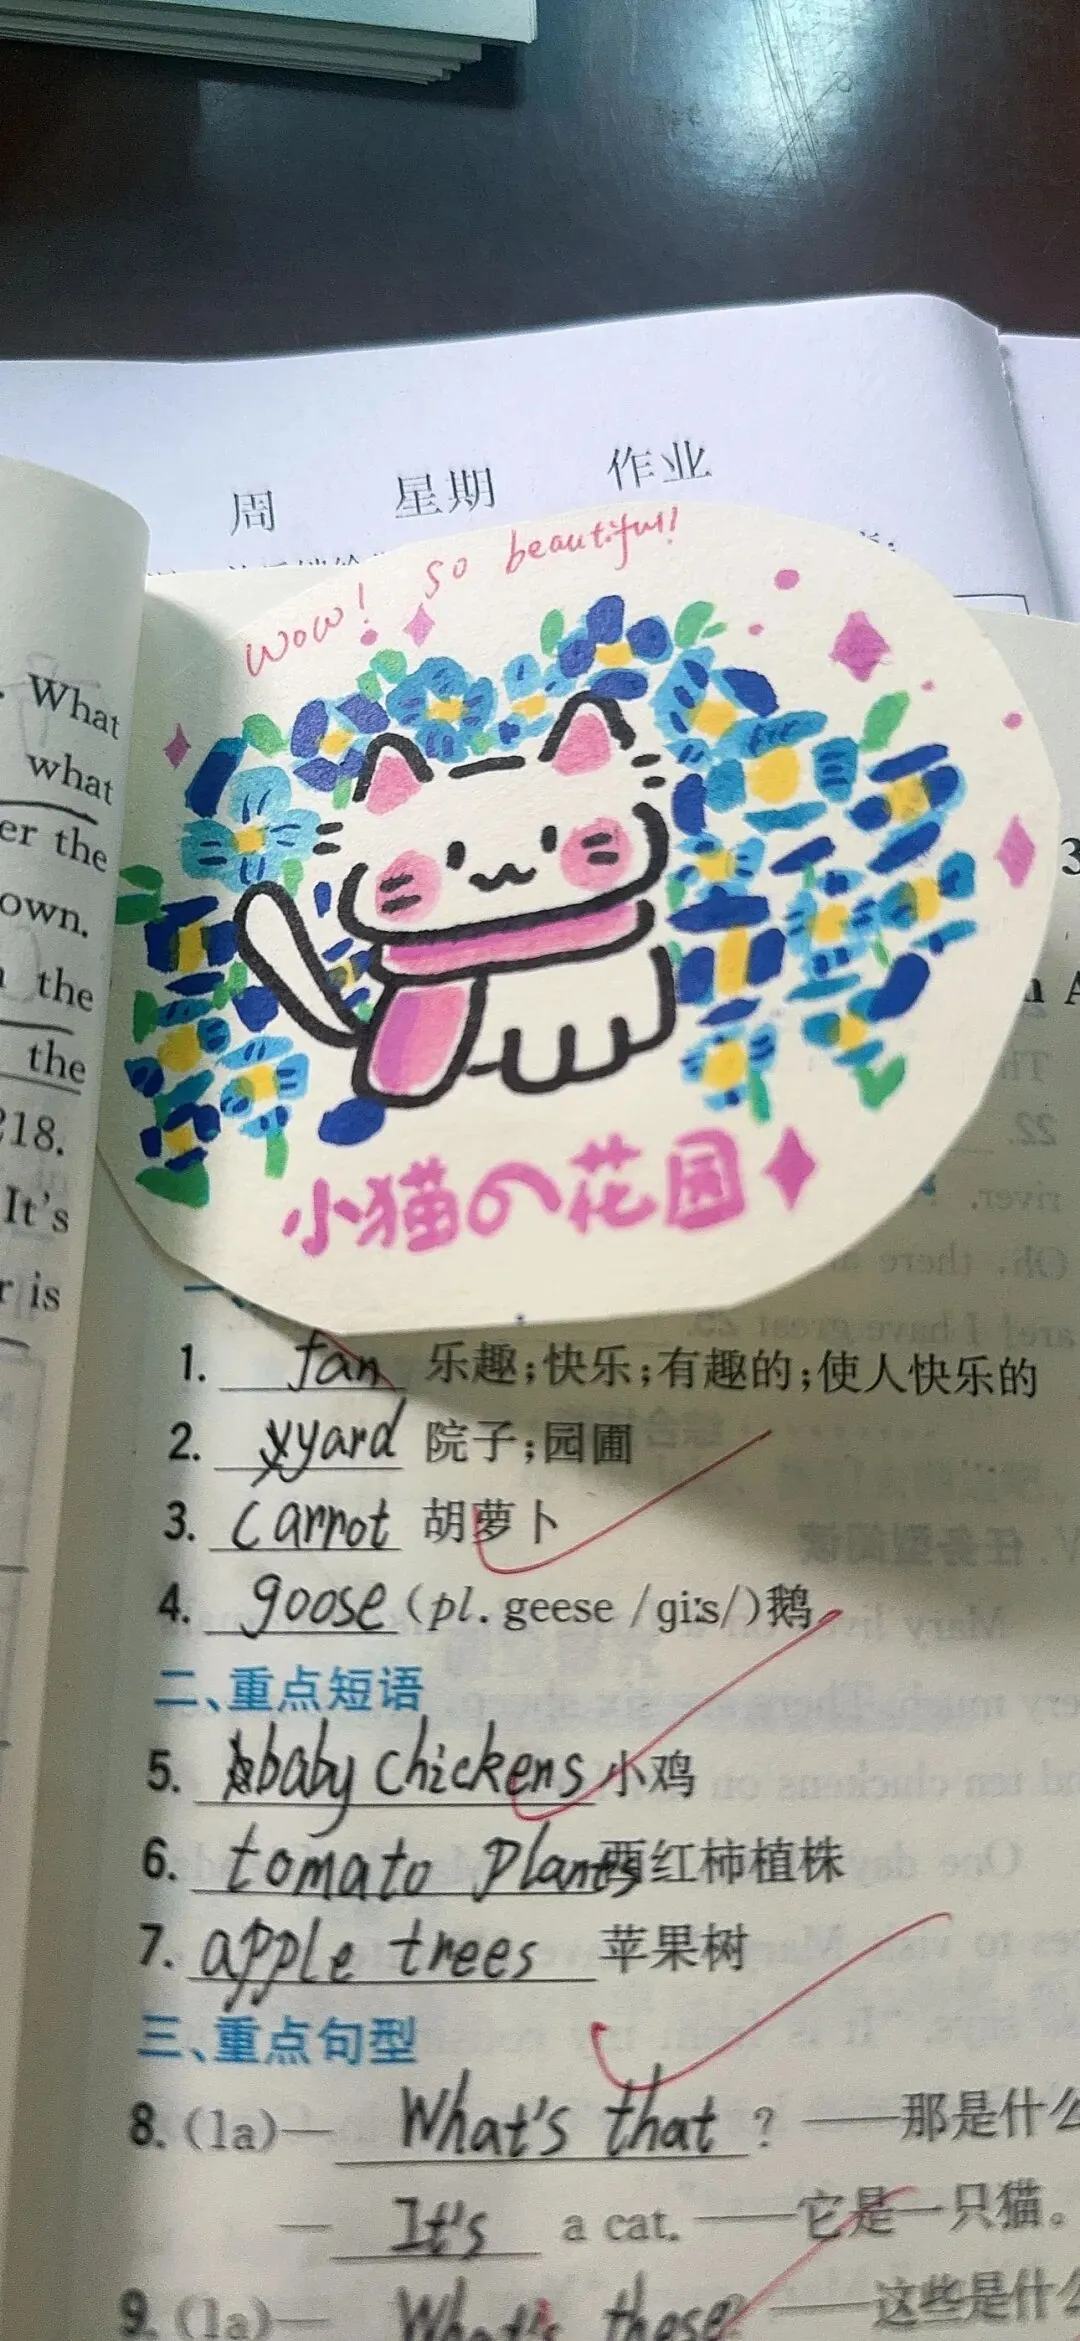 周 星期 作业
wow! so beautiful!
What
what
er the
own.
the
the
218.
It's
r is
小猫の花园
1. fan 乐趣;快乐;有趣的;使人快乐的
2. yyard 院子;园圃
3. carrot 胡萝卜
4. goose (pl. geese /giːs/)鹅
二、重点短语
5. bbaby chickens 小鸡
6. tomato plants 西红柿植株
7. apple trees 苹果树
三、重点句型
8. (1a)— What's that ? ——那是什么
— It's a cat. ——它是一只猫。
9. (1a)— What's these? ——这些是什么